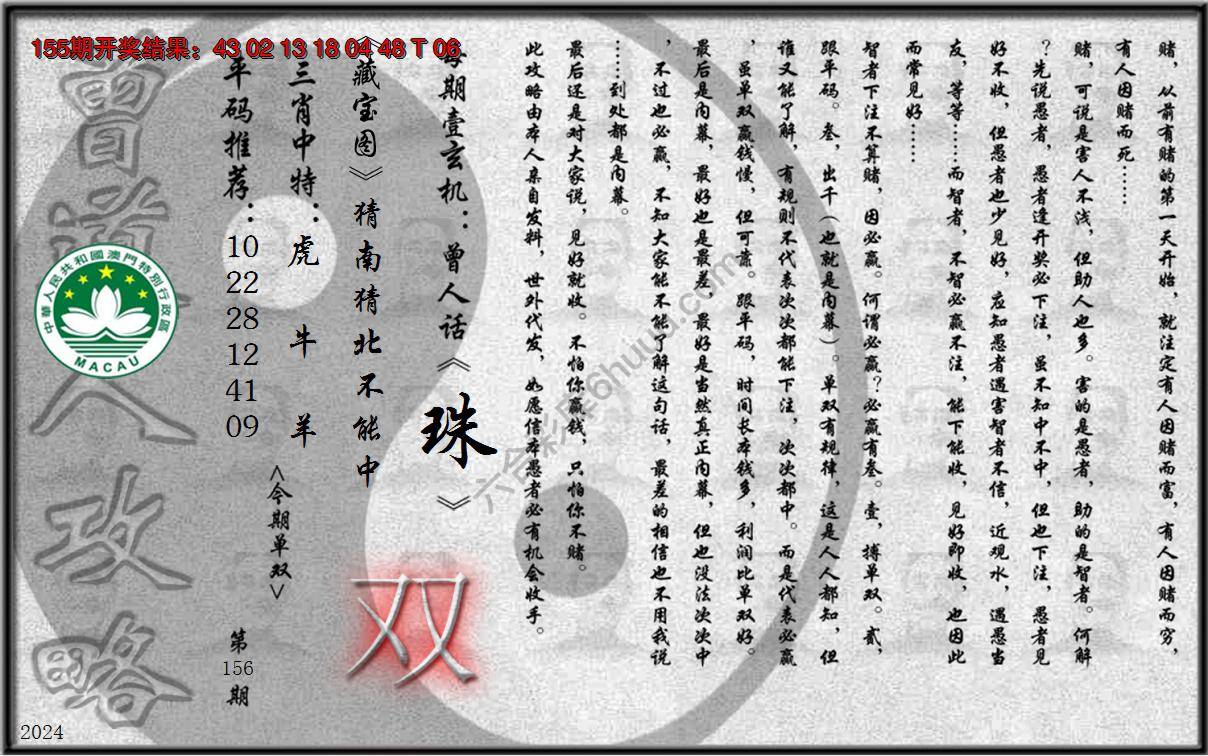 155期开奖结果：43 02 13 18 04 48 T 06
赌，从前有赌的第一天开始，就注定有人因赌而富，有人因赌而穷，
有人因赌而死……
赌，可说是害人不浅，但助人也多。害的是愚者，助的是智者。何解
？先说愚者，愚者逢开奖必下注，虽不知中不中，但也下注，愚者见
好不收，但愚者也少见好，应知愚者遇害智者不信，近观水，遇愚当
友，等等……而智者，不智必赢不注，能下能收，见好即收，也因此
而常见好……
智者下注不算赌，因必赢。何谓必赢？必赢有叁。壹，搏单双。贰，
跟平码。叁，出千（也就是内幕）。单双有规律，这是人人都知，但
谁又能了解，有规则不代表次次都能下注，次次都中。而是代表必赢
，虽单双赢钱慢，但可靠。跟平码，时间长本钱多，利润比单双好。
最后是内幕，最好也是最差，最好是当然真正内幕，但也没法次次中
，不过也必赢，不知大家能不能了解这句话，最差的相信也不用我说
……到处都是内幕。
最后还是对大家说，见好就收。不怕你赢钱，只怕你不赌。
此攻略由本人亲自发料，世外代发，如愿信本愚者必有机会收手。
每期壹玄机：曾人话《珠》
《藏宝图》猜南猜北不能中
双
三肖中特：虎 牛 羊
<今期单双>
平码推荐：10 22 28 12 41 09
第156期
曾道人攻略
中華人民共和國澳門特別行政區
MACAU
2024